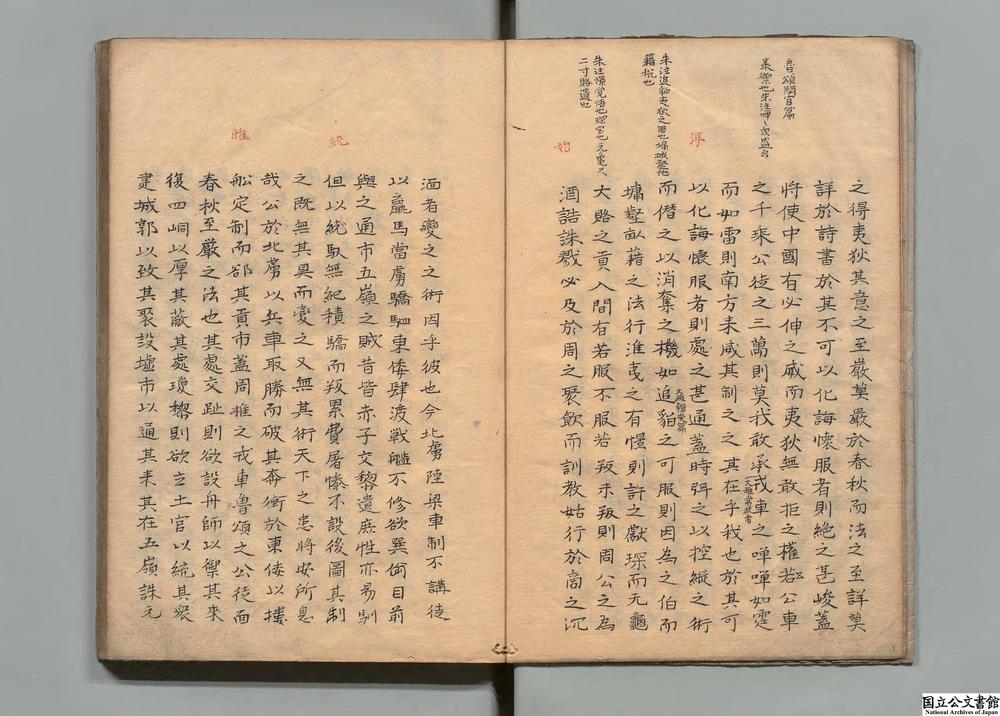 魯頌閟宮篇
朱注
朱注追貊夷狄之國也墉城壑池
籍稅也
朱注憬覺悟也琛寶也元龜尺
二寸賂遺也
得
始
之得夷狄其意之至嚴莫嚴於春秋而法之至詳莫
詳於詩書於其不可以化誨懷服者則絶之甚峻蓋
將使中國有必伸之威而夷狄無敢拒之權若公車
之千乘公徒之三萬則莫我敢承戎車之嘽嘽如霆
而如雷則南方来威其制之之其在乎我也於其可
以化誨懷服者則處之甚通蓋時弭之以控縱之術
而僭之以消奪之機如追貊之可服則因為之伯而
墉壑畝藉之法行淮夷之有憬則許之獻琛而元龜
大賂之貢入間有若服不服若叛未叛則周公之為
酒誥誅戮必及於周之聚飲而訓教姑行於商之沉
統
惟
湎者變之之術因乎彼也今北虜陸梁車制不講徒
以羸馬當虜驕駟東倭肆渡戦艦不修欲異倫目前
與之通市五嶺之賊昔皆赤子文黎遺庶性亦易馴
但以統馭無紀積驕而叛累費屠慘不設後圖其制
之既無其具而變之又無其術天下之患將安所息
哉公於北虜以兵車取勝而破其奔衝於東倭以樓
舩定制而郤其貢市蓋周惟之戎車魯頌之公徒而
春秋至嚴之法也其處交趾則欲設舟師以禦其來
復四峒以厚其蔽其處瓊黎則欲立土官以統其衆
建城郭以致其聚設墟市以通其来其在五嶺誅元
国立公文書館
National Archives of Japan